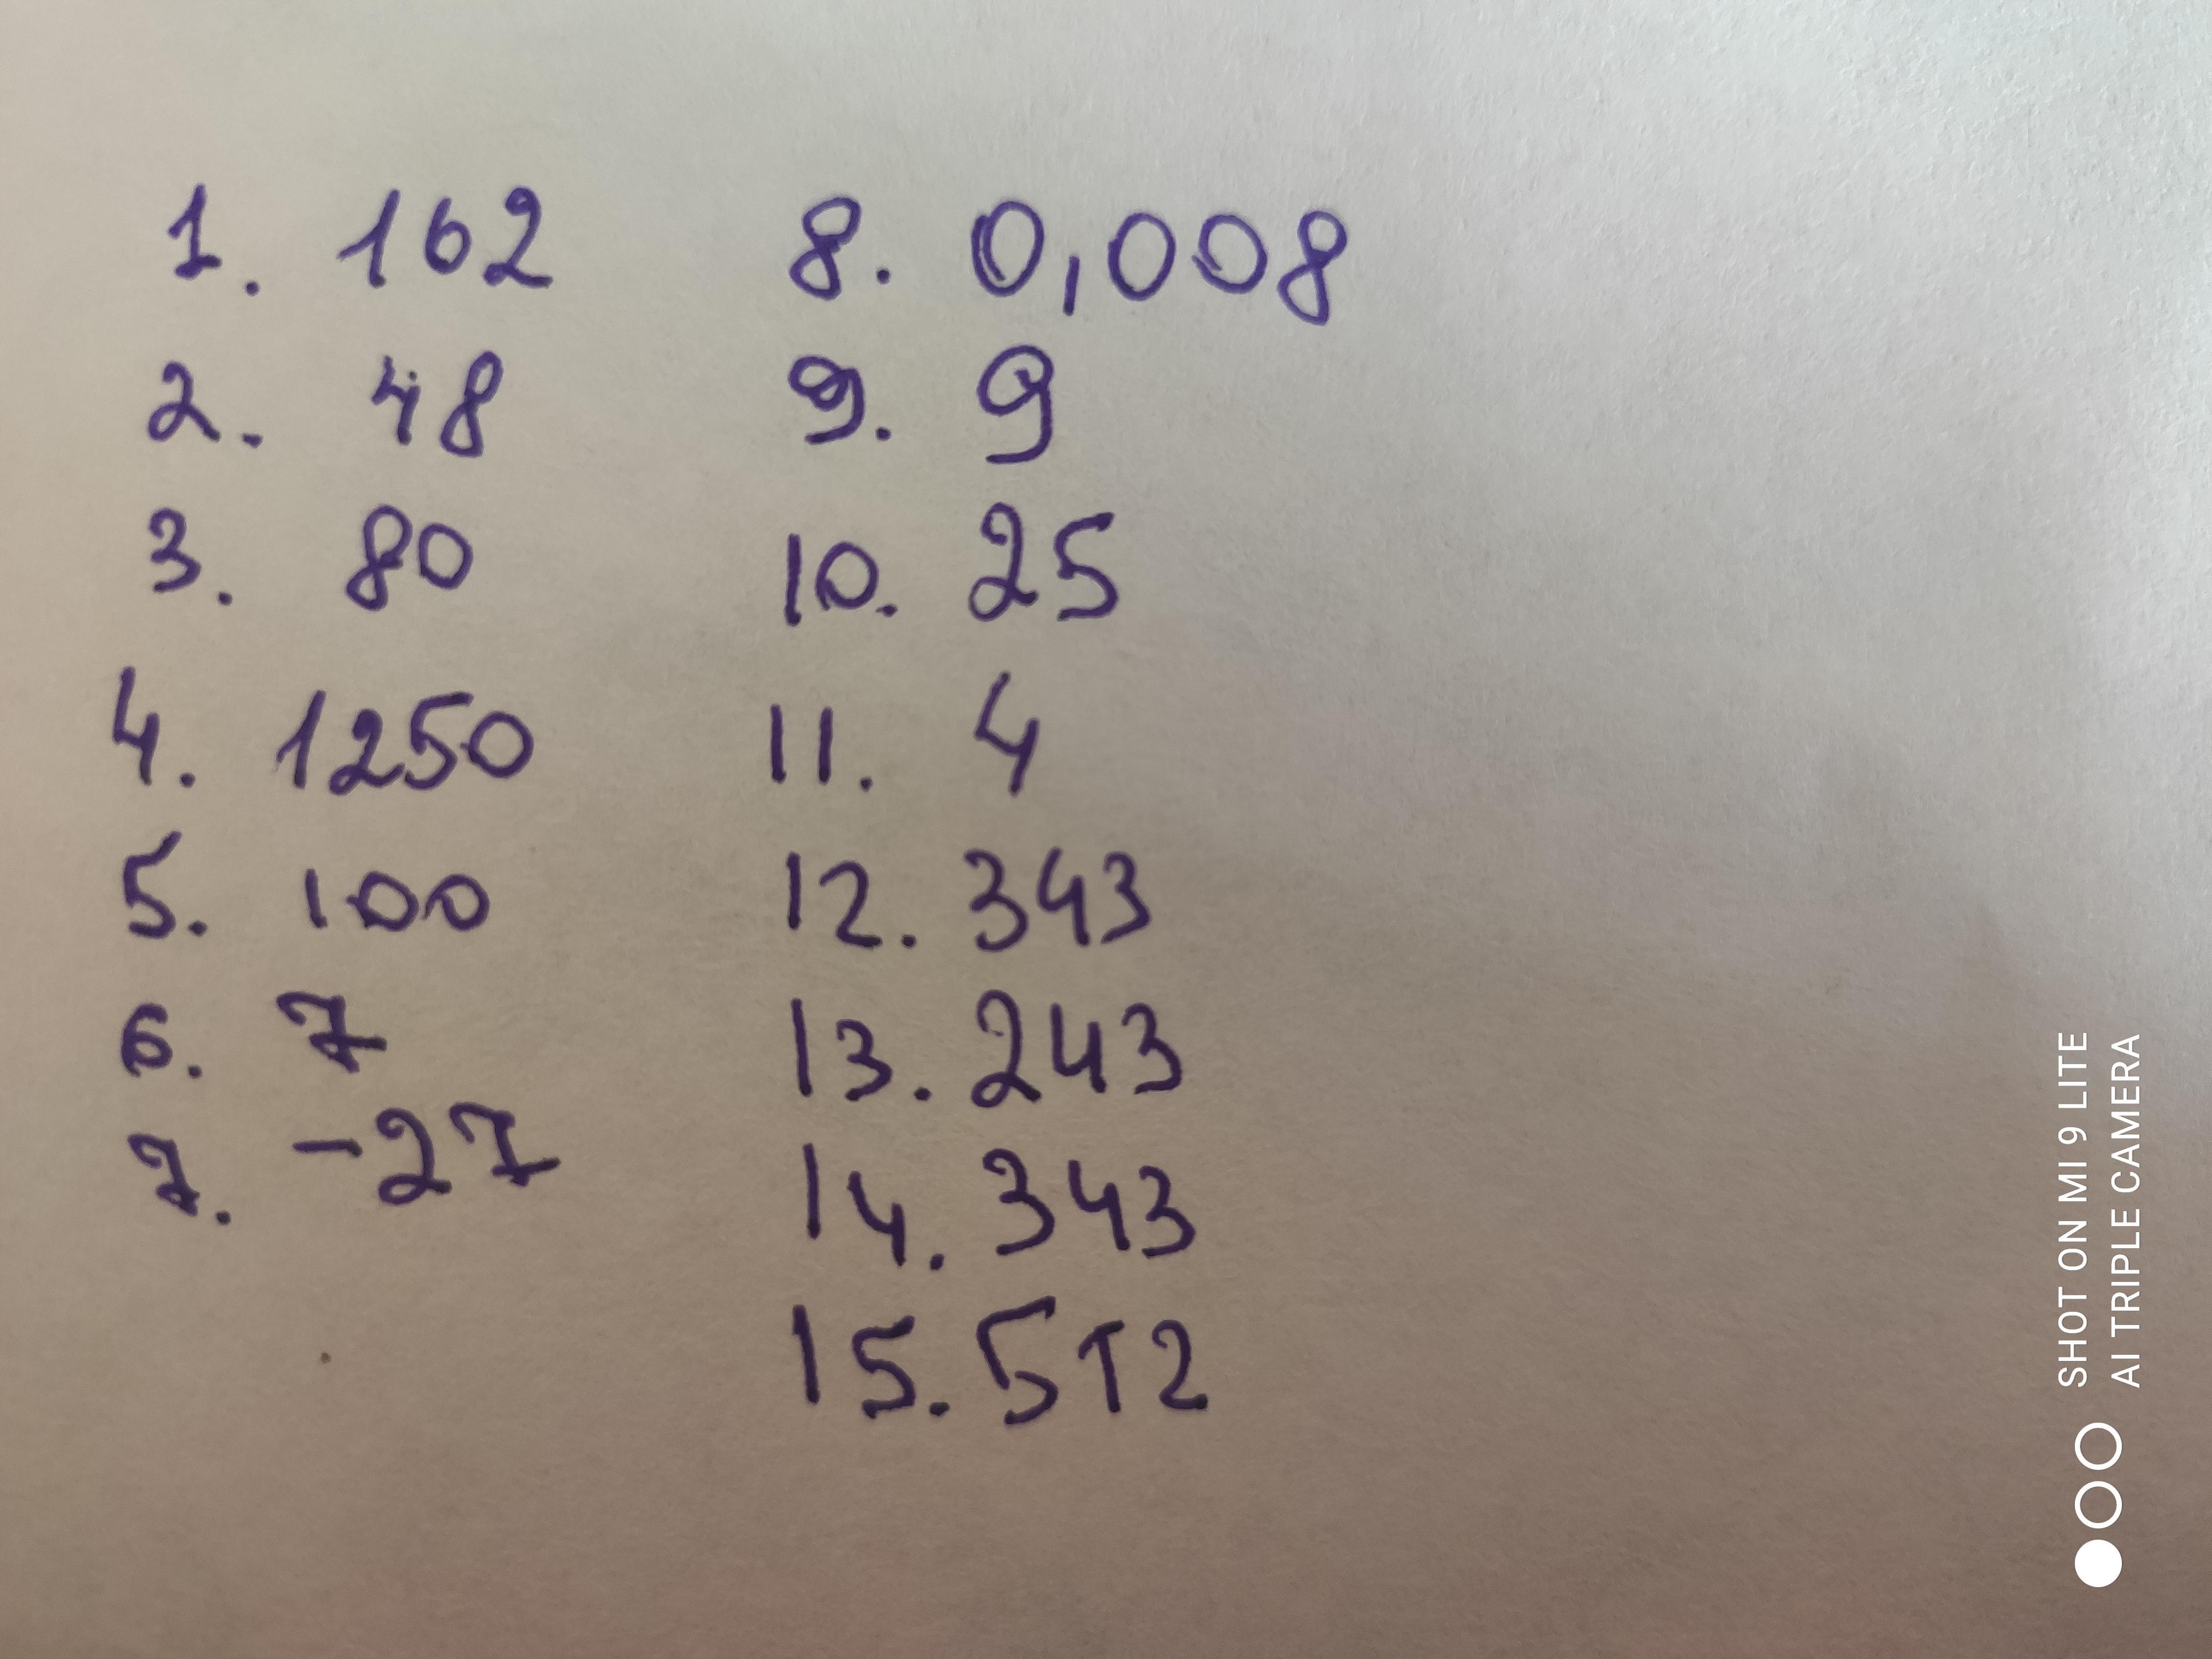 1. 162
2. 48
3. 80
4. 1250
5. 100
6. 7
7. -27
8. 0,008
9. 9
10. 25
11. 4
12. 343
13. 243
14. 343
15. 512
SHOT ON MI 9 LITE
AI TRIPLE CAMERA